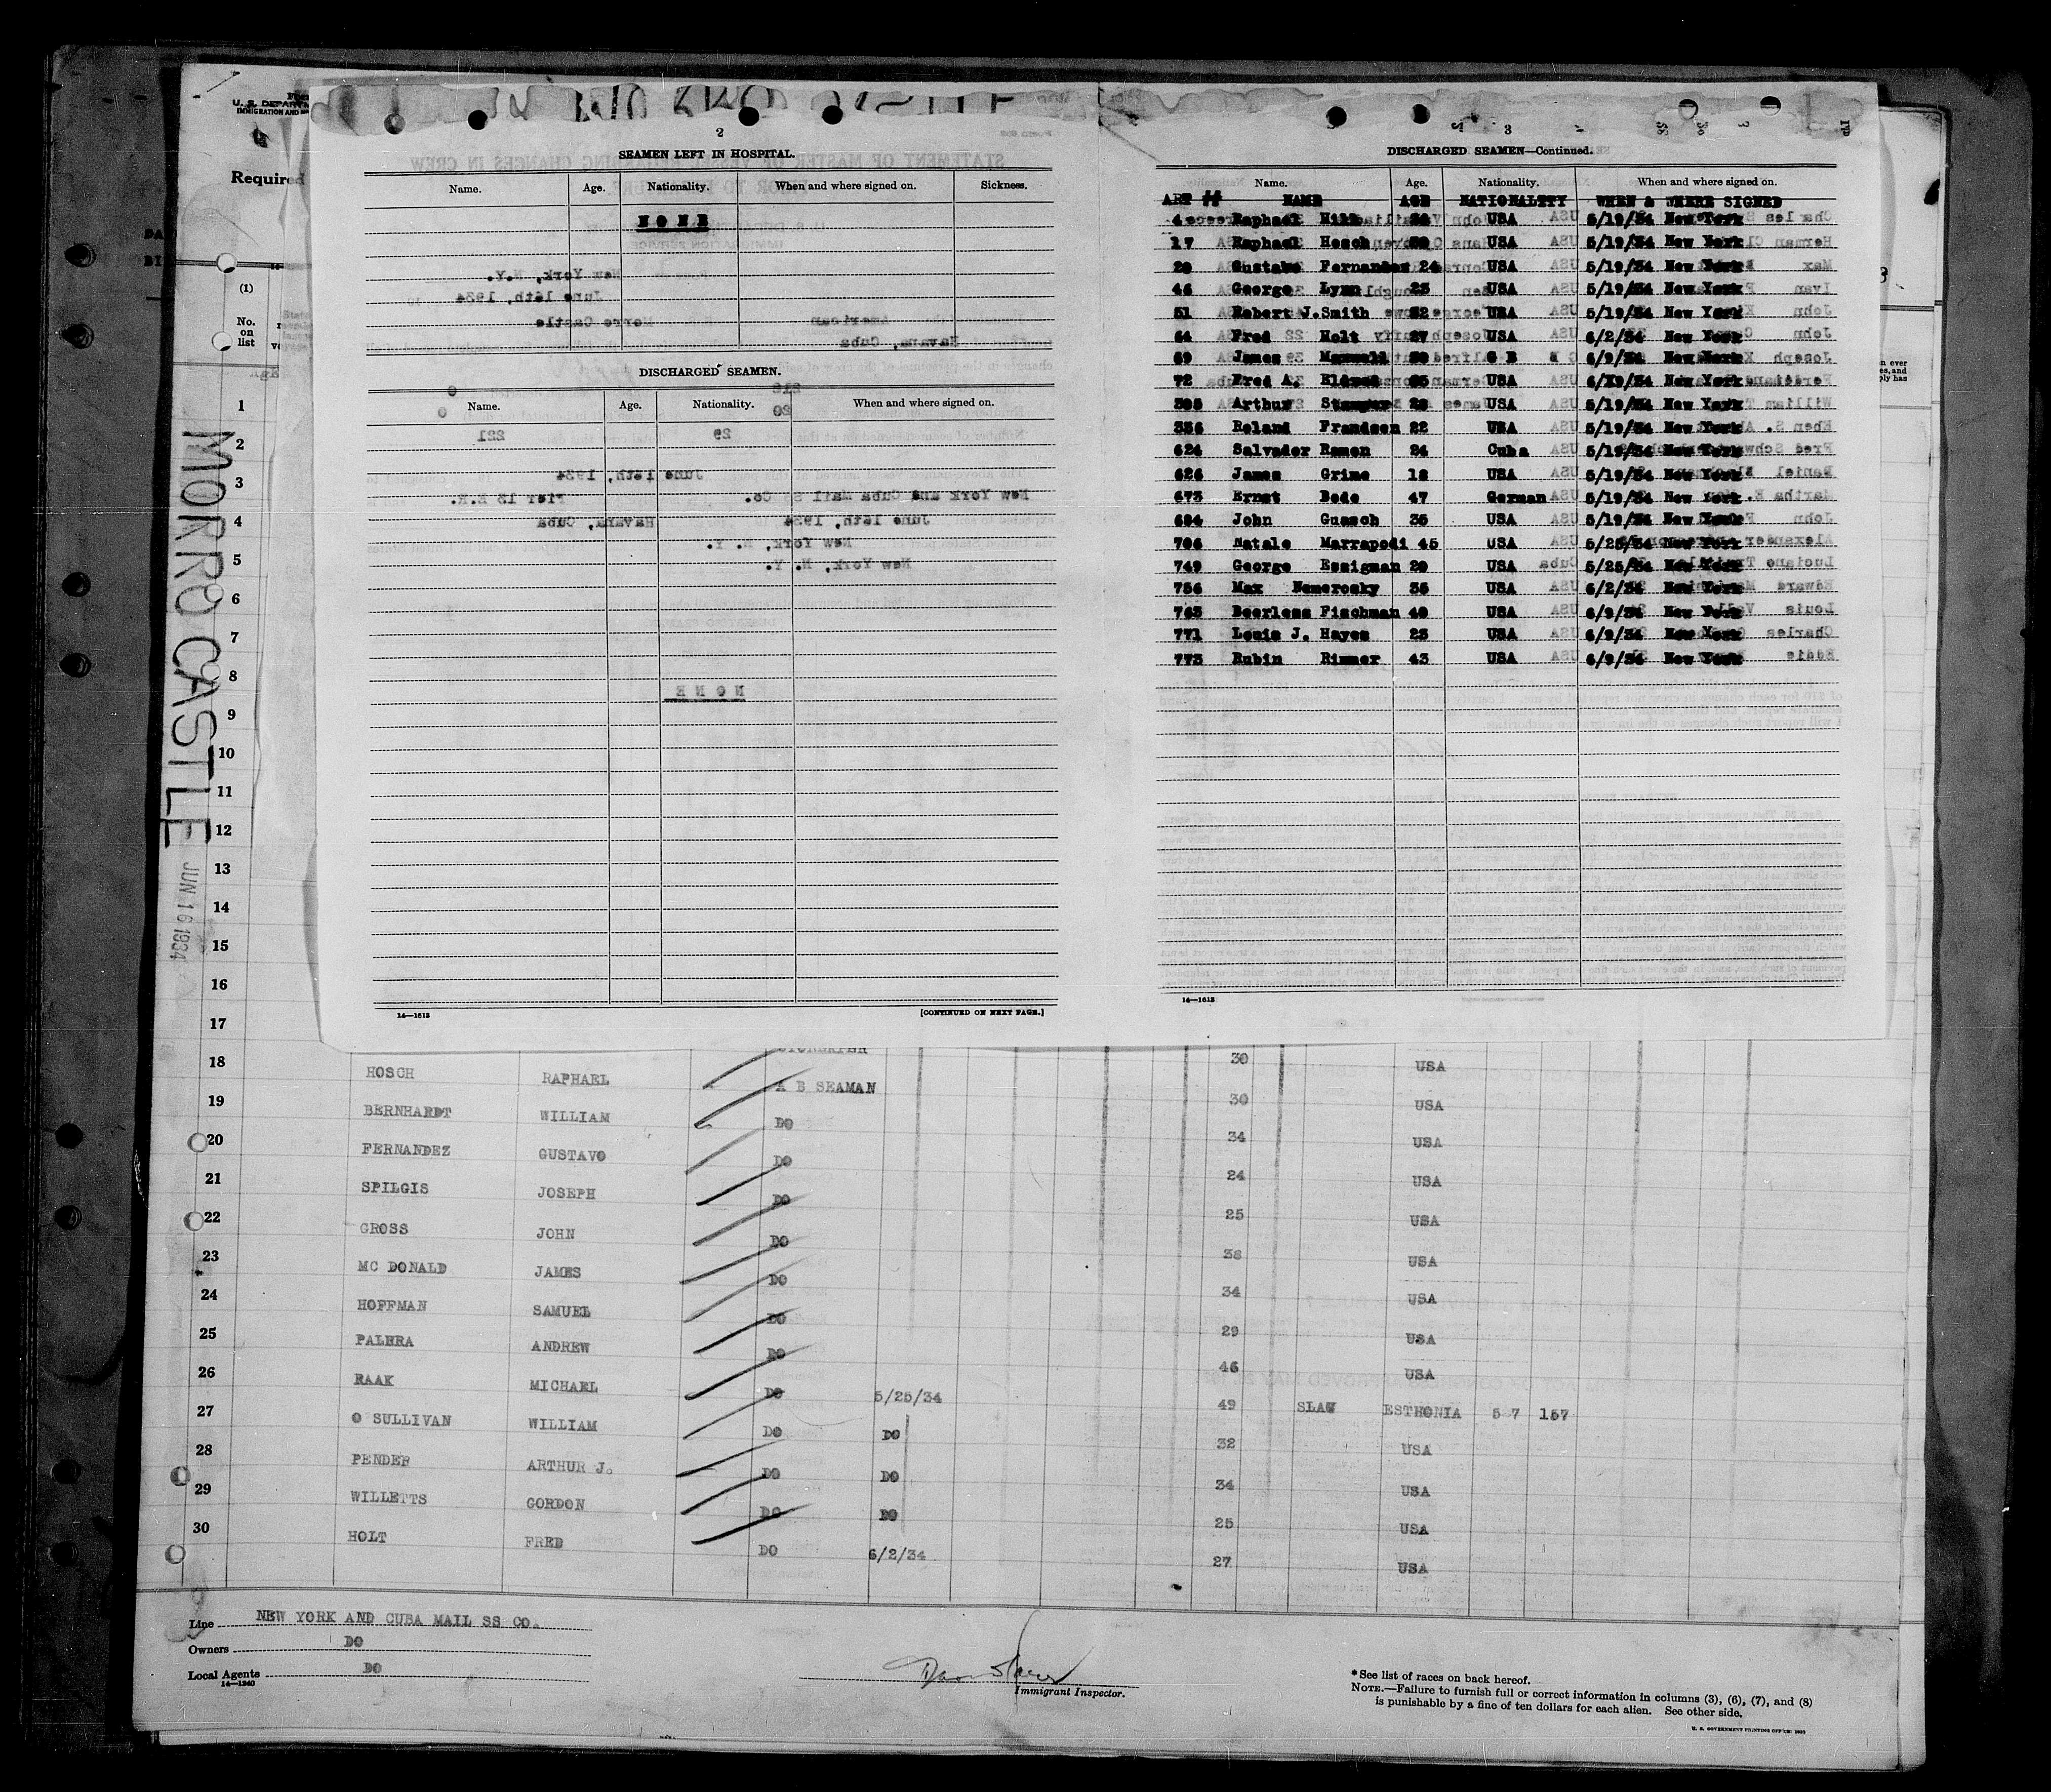 U. S. DEPARTM
IMMIGRATION AND
Required
(1)
No.
on
list
MORRO CASTLE
JUN 16 1934
2
SEAMEN LEFT IN HOSPITAL.
Name. Age. Nationality. When and where signed on. Sickness.
NONE
DISCHARGED SEAMEN.
Name. Age. Nationality. When and where signed on.
14—1613
[CONTINUED ON NEXT PAGE.]
3
DISCHARGED SEAMEN—Continued.
Name. Age. Nationality. When and where signed on.
ART ## NAME AGE NATIONALITY WHEN & WHERE SIGNED
4 Raphael USA 5/19/34 New York
17 Raphael Hosch USA 5/19/34 New York
20 Gustabo Fernandez 24 USA 5/19/34 New York
46 George Lynn 23 USA 5/19/34 New York
51 Robert J. Smith USA 5/19/34 New York
64 Fred Holt 27 USA 6/2/34 New York
69 James G B 6/9/34 New York
72 Fred A. USA New York
Arthur USA 5/19/34 New York
336 Roland Frandsen 22 USA 5/19/34 New York
624 Salvador Ramon 24 Cuba 5/19/34 New York
626 James Grime 18 USA 5/19/34 New York
673 Ernst Bode 47 German 5/19/34 New York
684 John Guasch 35 USA 5/19/34 New York
706 Natale Marrapodi 45 USA 5/25/34 New York
749 George Essigman 29 USA 5/25/34 New York
756 Max Nemerosky 35 USA 6/2/34 New York
763 Beerless Fischman 40 USA 6/9/34 New York
771 Louis J. Hayes 23 USA 6/9/34 New York
773 Rubin Rimmer 43 USA 6/9/34 New York
14—1613
1
2
3
4
5
6
7
8
9
10
11
12
13
14
15
16
17
18 HOSCH RAPHAEL A B SEAMAN 30 USA
19 BERNHARDT WILLIAM DO 30 USA
20 FERNANDEZ GUSTAVO DO 34 USA
21 SPILGIS JOSEPH DO 24 USA
22 GROSS JOHN DO 25 USA
23 MC DONALD JAMES DO 38 USA
24 HOFFMAN SAMUEL DO 34 USA
25 PALERA ANDREW DO 29 USA
26 RAAK MICHAEL DO 5/25/34 46 USA
27 O SULLIVAN WILLIAM DO DO 49 SLAV ESTHONIA 5 7 157
28 PENDER ARTHUR J. DO DO 32 USA
29 WILLETTS GORDON DO DO 34 USA
30 HOLT FRED DO 6/2/34 25 USA
27 USA
Line NEW YORK AND CUBA MAIL SS CO.
Owners DO
Local Agents DO
14—1240
Immigrant Inspector.
*See list of races on back hereof.
NOTE.—Failure to furnish full or correct information in columns (3), (6), (7), and (8)
is punishable by a fine of ten dollars for each alien. See other side.
U. S. GOVERNMENT PRINTING OFFICE: 1932